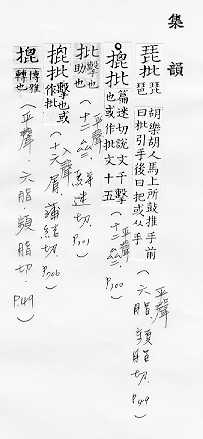 集韻
琵批琶 胡樂胡人馬上所鼓推手前曰批引手後曰把或从手
(平聲.六脂.頻脂切.P.49)
㨢批 篇迷切說文手擊也或作批文十五
(平聲.十二齊.P.100)
批 擊也助也
(十二齊.緜迷切.P.101)
㨢批 擊也或作批
(入聲.十六屑.蒲結切.P.706)
㨢 博雅轉也
(平聲.六脂.頻脂切.P.49)